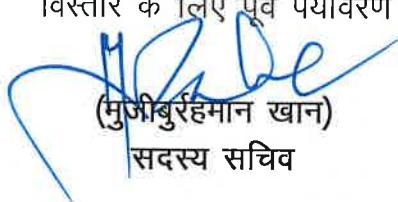 विस्तार के लिए पूर्व पर्यावरण
(मुजीबुर्रहमान खान)
सदस्य सचिव